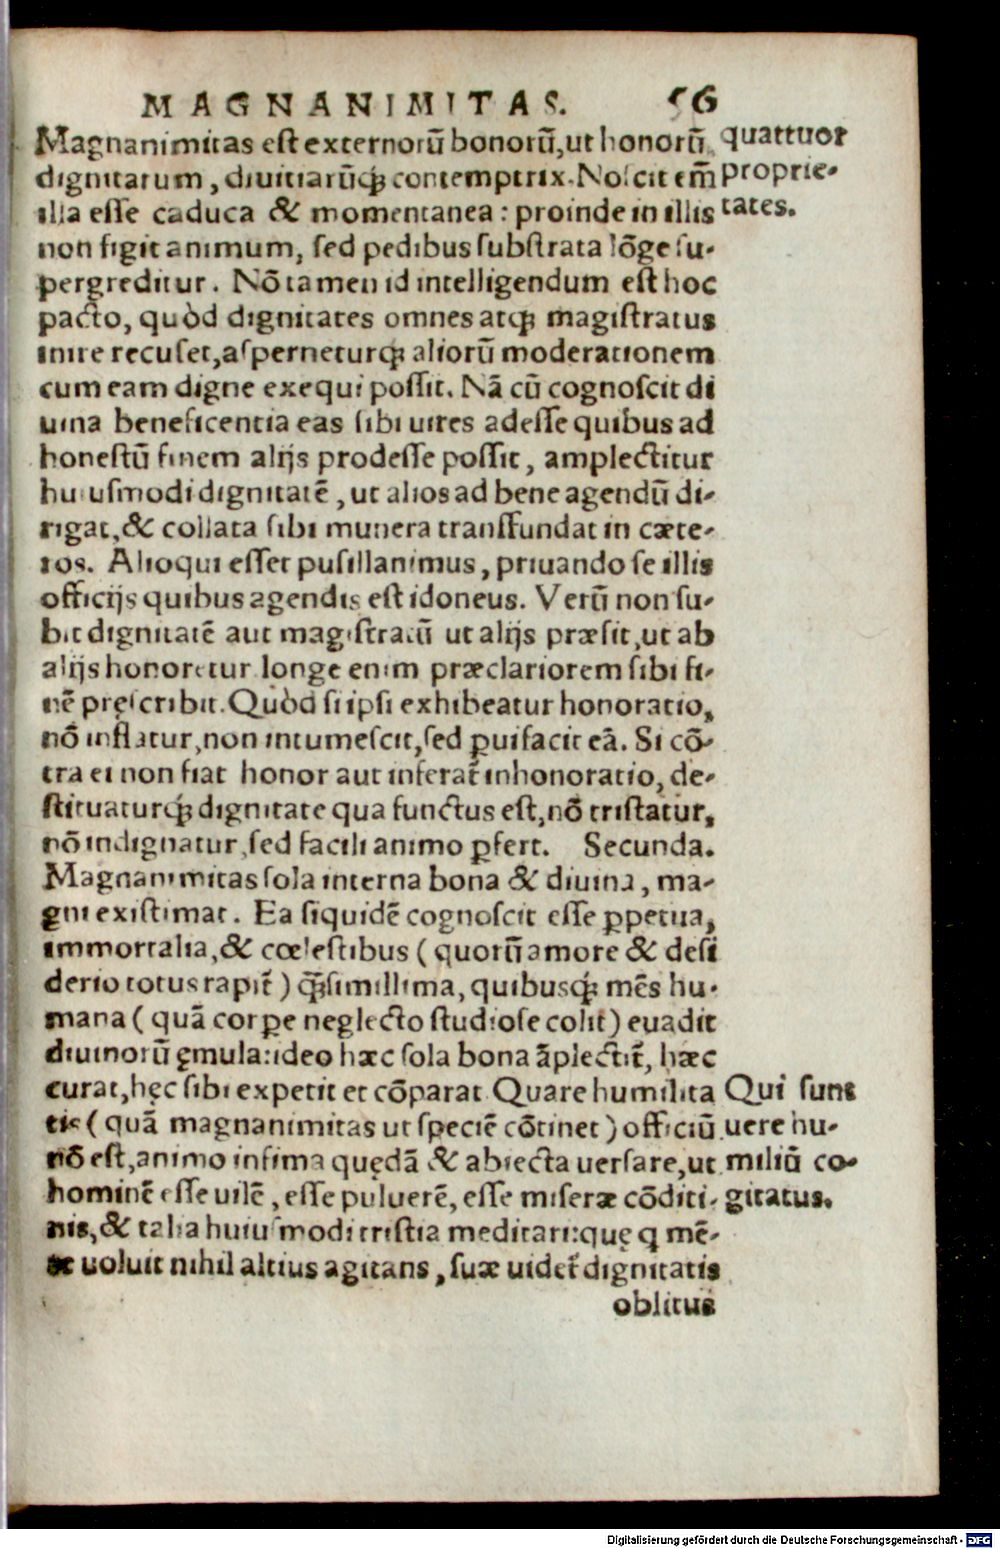 MAGNANIMITAS. 56
Magnanimitas est externorũ bonorũ, ut honorũ
dignitatum, diuitiarũq́; contemptrix. Noscit em̃
illa esse caduca & momentanea: proinde in illis
non figit animum, sed pedibus substrata lõge su-
pergreditur. Nõ tamen id intelligendum est hoc
pacto, quòd dignitates omnes atq; magistratus
inire recuset, asperneturq; aliorũ moderationem
cum eam digne exequi possit. Nã cũ cognoscit di
uina beneficentia eas sibi uires adesse quibus ad
honestũ finem alijs prodesse possit, amplectitur
huiusmodi dignitatẽ, ut alios ad bene agendũ di-
rigat, & collata sibi munera transfundat in cæte-
ros. Alioqui esset pusillanimus, priuando se illis
officijs quibus agendis est idoneus. Verũ non su-
bit dignitatẽ aut magistratũ ut alijs præsit, ut ab
alijs honoretur longe enim præclariorem sibi fi-
nẽ pręscribit. Quòd si ipsi exhibeatur honoratio,
nõ inflatur, non intumescit, sed ꝑuifacit eã. Si cõ-
tra ei non fiat honor aut inferat̃ inhonoratio, de-
stituaturq́; dignitate qua functus est, nõ tristatur,
nõ indignatur, sed facili animo ꝑfert. Secunda.
Magnanimitas sola interna bona & diuina, ma-
gni existimat. Ea siquidẽ cognoscit esse ꝑpetua,
immortalia, & cœlestibus (quorũ amore & desi
derio totus rapit̃) q̃;simillima, quibusq́; mẽs hu-
mana (quã corꝑe neglecto studiose colit) euadit
diuinorũ ęmula: ideo hæc sola bona ãplectit̃, hæc
curat, hęc sibi expetit et cõparat. Quare humilita
tis (quã magnanimitas ut speciẽ cõtinet) officiũ
nõ est, animo infima quędã & abiecta uersare, ut
hominẽ esse uilẽ, esse puluerẽ, esse miseræ cõditi-
nis, & talia huiusmodi tristia meditari: quę q mẽ-
te uoluit nihil altius agitans, suæ uidet̃ dignitatis
oblitus
quattuor
proprie-
tates.
Qui sunt
uere hu-
miliũ co-
gitatus.
Digitalisierung gefördert durch die Deutsche Forschungsgemeinschaft - DFG